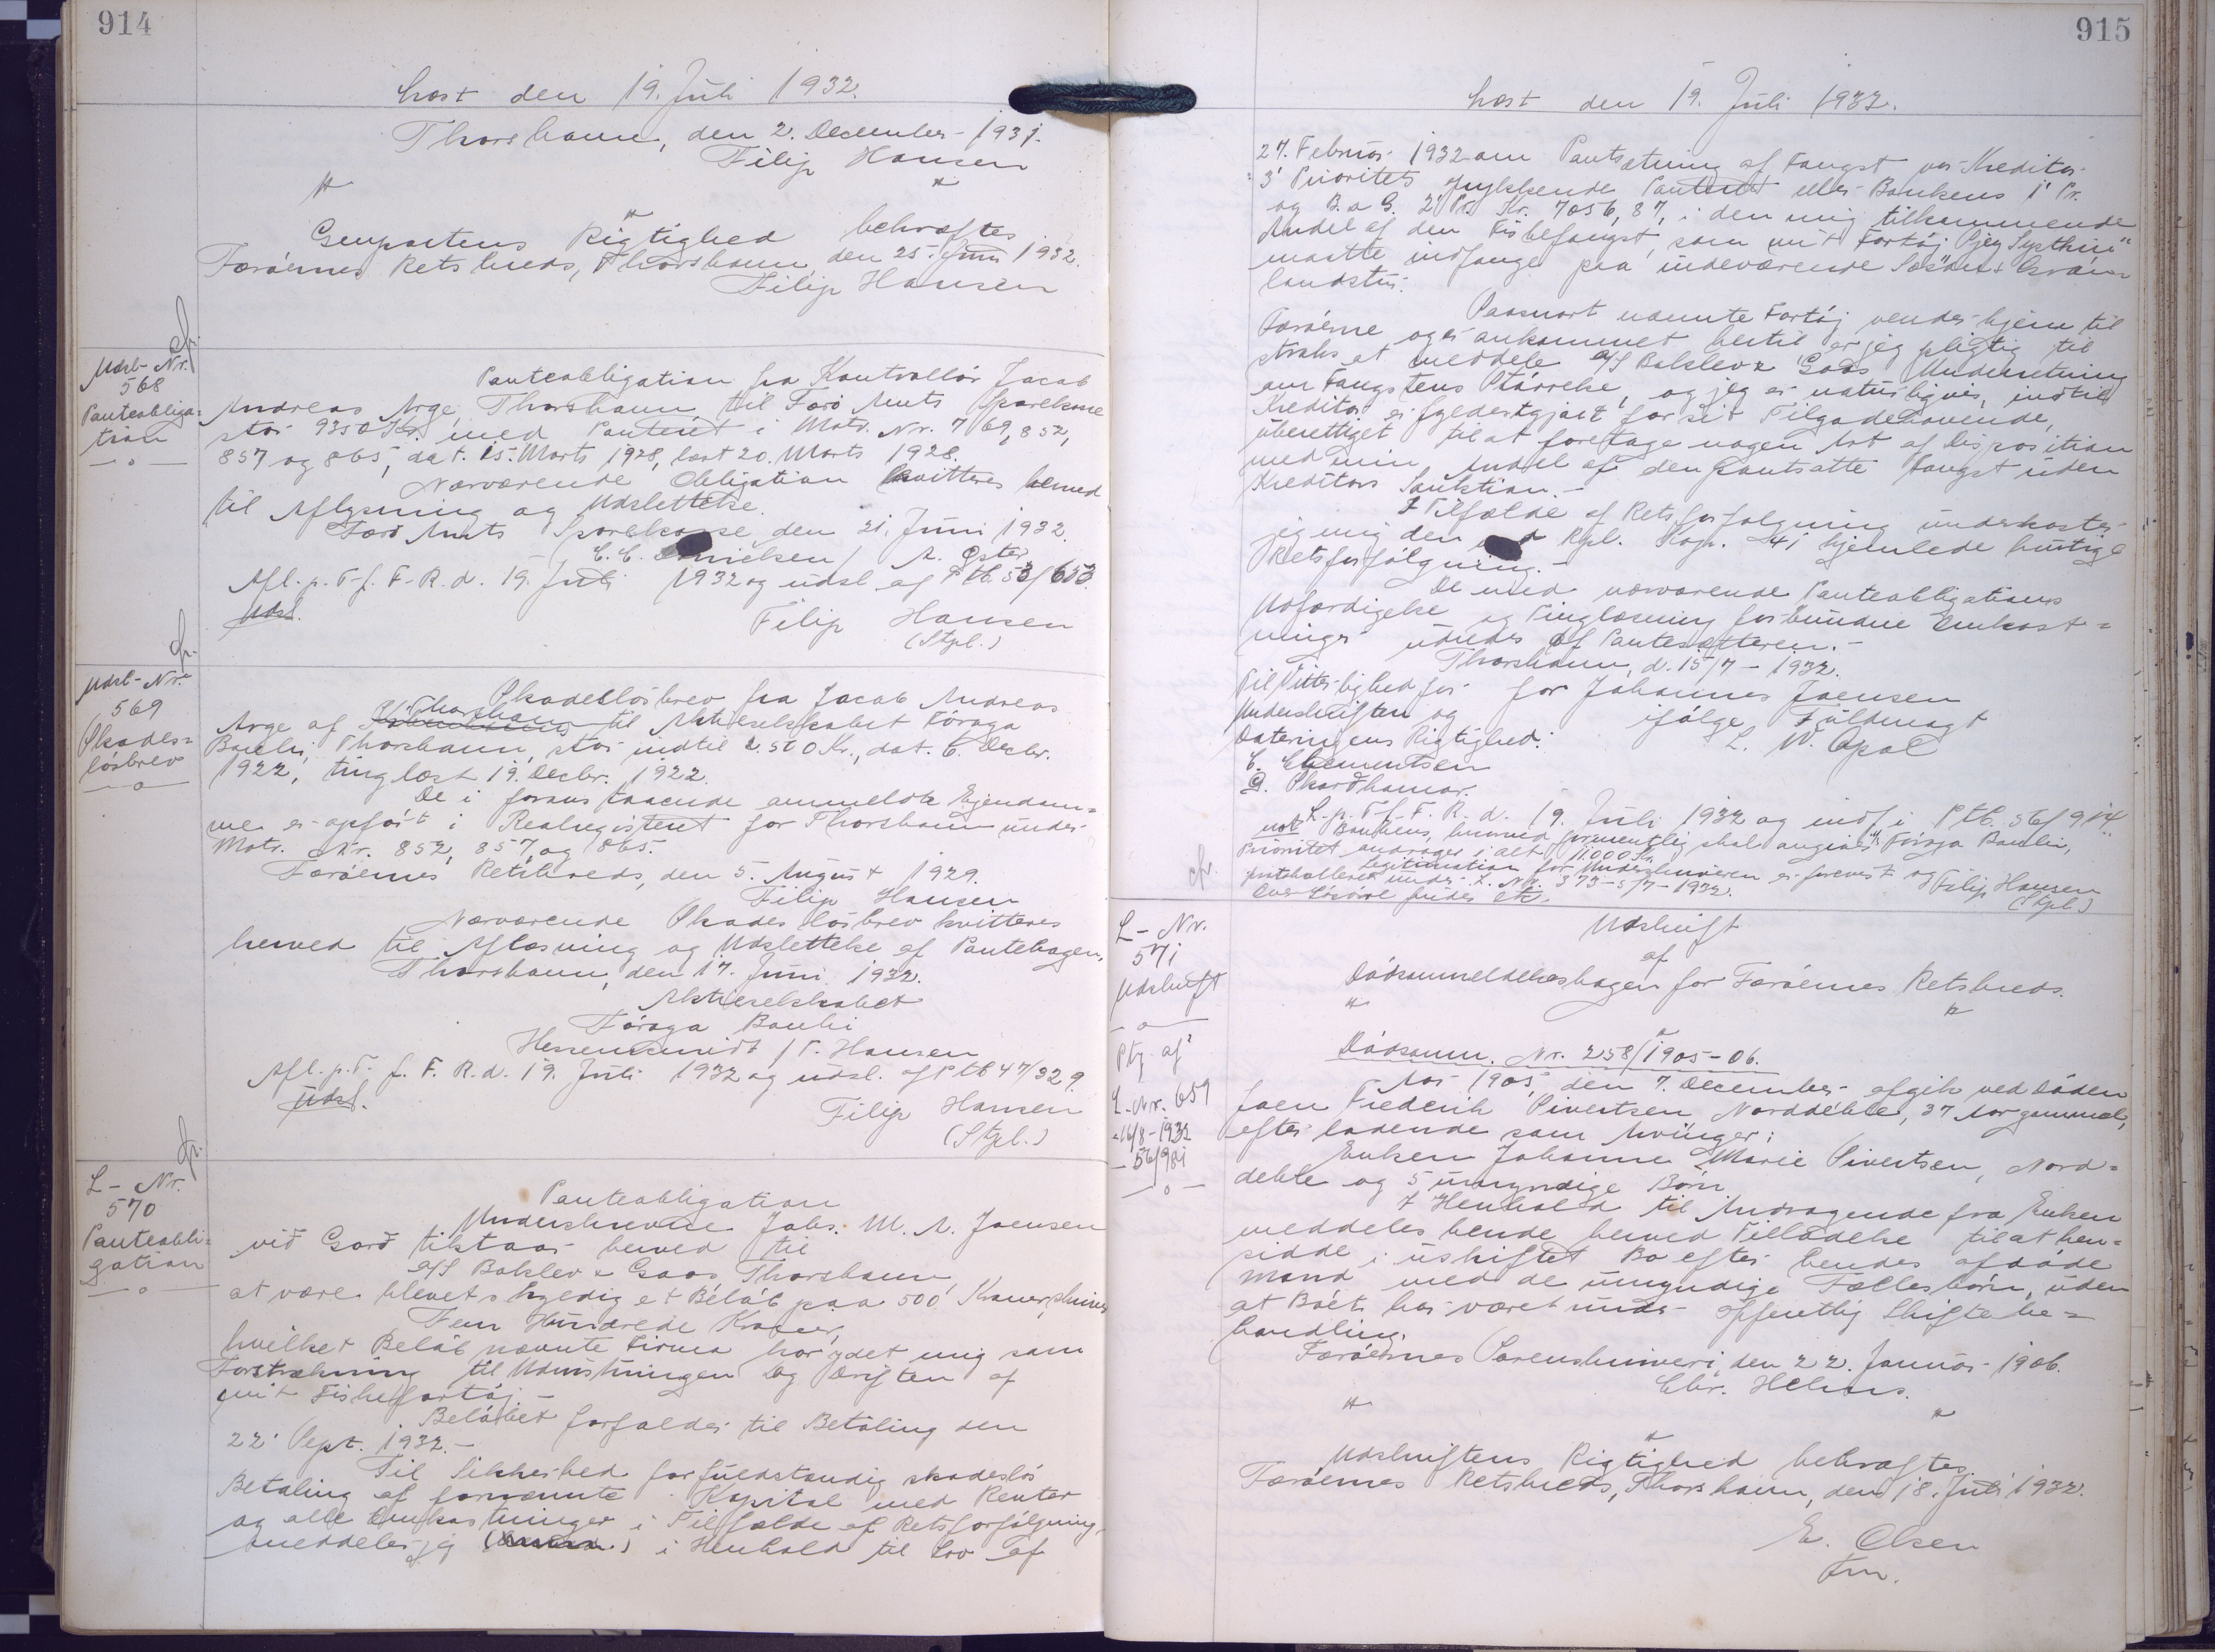 914
Læst den 19. Juli 1932.
Thorshavn, den 2. December 1931.
Filip Hansen
Genpartens Rigtighed bekræftes
Færóernes Retskreds, Thorshavn den 25. Juni 1932.
Filip Hansen
cfr.
Udsl- Nr.
568
Panteobliga-
tion
Panteobligation fra Kontrollör Jacob
Andreas Arge, Thorshavn, til Færö Amts Sparekasse
stor 9350 Kr. med Panteret i Matr. Nr. 769, 852,
857 og 865, dat. 15. Marts 1928, læst 20. Marts 1928.
Nærværende Obligation kvitteres herved
til Aflysning og Udslettelse.
Færö Amts Sparekasse, den 21. Juni 1932.
C. C. Danielsen / A. Øster
Afl. p. T. f. F. R. d. 19. Juli 1932 og udsl. af Ptb. 53/653.
Udsl.
Filip Hansen
(Stpl.)
cfr.
Udsl- Nr.
569
Skades-
lösbrev
Skadeslösbrev fra Jacob Andreas
Arge af Thorshavn til Aktieselskabet Föroya
Banki, Thorshavn, stor indtil 2.500 Kr., dat. 6. Decbr.
1922, tinglæst 19. Decbr. 1922.
De i foranstaaende anmeldte Ejendom-
me er opfört i Realregistret for Thorshavn under
Matr. Nr. 852, 857, og 865.
Færóernes Retskreds, den 5. August 1929.
Filip Hansen
Nærværende Skadeslösbrev kvitteres
herved til Aflæsning og Udslettelse af Pantebogen,
Thorshavn, den 17. Juni 1932.
Aktieselskabet
Föroya Banki
Hessenschmidt / T. Hansen
Afl. p. T. f. F. R. d. 19. Juli 1932 og udsl. af Ptb 47/329.
Udsl.
Filip Hansen
(Stpl.)
cfr.
L - Nr.
570
Panteobli-
gation
Panteobligation
Underskrevne Johs. M. A. Joensen
við Garð tilstaar herved til
A/S Balslev & Gaas, Thorshavn
at være blevet skyldig et Beløb paa 500 Kroner, skriver
Fem Hundrede Kroner,
hvilket Beløb nævnte Firma har ydet mig som
Forstrækning til Udrustningen og Driften af
mit Fiskefartöj. -
Belöbet forfalder til Betaling den
22' Sept. 1932. -
Til Sikkerhed for fuldstændig skadeslös
Betaling af fornævnte Kapital med Renter
og alle Omkostninger i Tilfælde af Retsforfölgning,
meddeler jeg i Henhold til Lov af
915
Læst den 19. Juli 1932.
27. Februar 1932 om Pantsætning af Fangst vor Kreditor
3' Prioritets Panteret efter Bankens 1' Pr.
og B. & G. 2' Pr. Kr. 7056,87, i den mig tilkommende
Andel af den Fiskefangst, som mit Fartöj
maatte indfange paa indeværende Sæsons Grön-
landstur.
Saasnart nævnte Fartöj vender hjem til
Færóerne og er ankommet hertil er jeg pligtig til
straks at meddele A/S Balslev & Gaas Underretning
om Fangstens Störrelse, og jeg er naturligvis, indtil
Kreditor er fyldestgjort for sit Tilgodehavende,
uberettiget til at foretage nogen Art af Disposition
med min Andel af den pantsatte Fangst uden
Kreditors Sanktion. -
I Tilfælde af Retsforfølgning underkaster
jeg mig den Rpl. Kap. 41 hjemlede hurtige
Retsforfølgning. -
De med nærværende Panteobligations
Udfærdigelse og Tinglæsning forbundne Omkost-
ninger udredes af Pantesætteren. -
Thorshavn, d. 15/7 - 1932.
Til Vitterlighed for
Underskriften og
Dateringens Rigtighed:
for Johannes Joensen
ifölge Fuldmagt
L. W. Opal
C. Clementsen
D. Skarðhamar.
L. p. T. f. F. R. d. 19. Juli 1932 og indf. i Ptb. 56/914
not Bankens, hvorved formentlig skal angives "Föroya Banki",
Prioritet andrager i alt 11.000 Kr.
Legitimation for Underskriveren er forevist og
protokolleret under L. Nr. 373 - 5/7 - 1932.
Filip Hansen
(Stpl.)
cfr.
L - Nr.
571
Udskrift
Ptg. af
L. Nr. 659
16/8 - 1932
56/981
Udskrift
af
Dödsanmeldelsesbogen for Færóernes Retskreds.
Dödsanm. Nr. 258/1905-06.
Aar 1905, den 7. December afgik ved Döden
Joen Frederik Sivertsen Norddeble, 37 Aar gammel,
efterladende som Arvinger:
Enken Johanne Marie Sivertsen, Nord-
deble og 5 umyndige Börn
I Henhold til Andragende fra Enken
meddeles hende herved Tilladelse til at hen-
sidde i uskiftet Bo efter hendes afdöde
Mand med de umyndige Fællesbörn, uden
at Boet har været under offentlig Skiftebe-
handling.
Færóernes Sorenskriveri, den 22. Januar 1906.
Chr. Helms.
Udskriftens Rigtighed bekræftes
Færóernes Retskreds, Thorshavn, den 18. Juli 1932.
E. Olsen
fm.